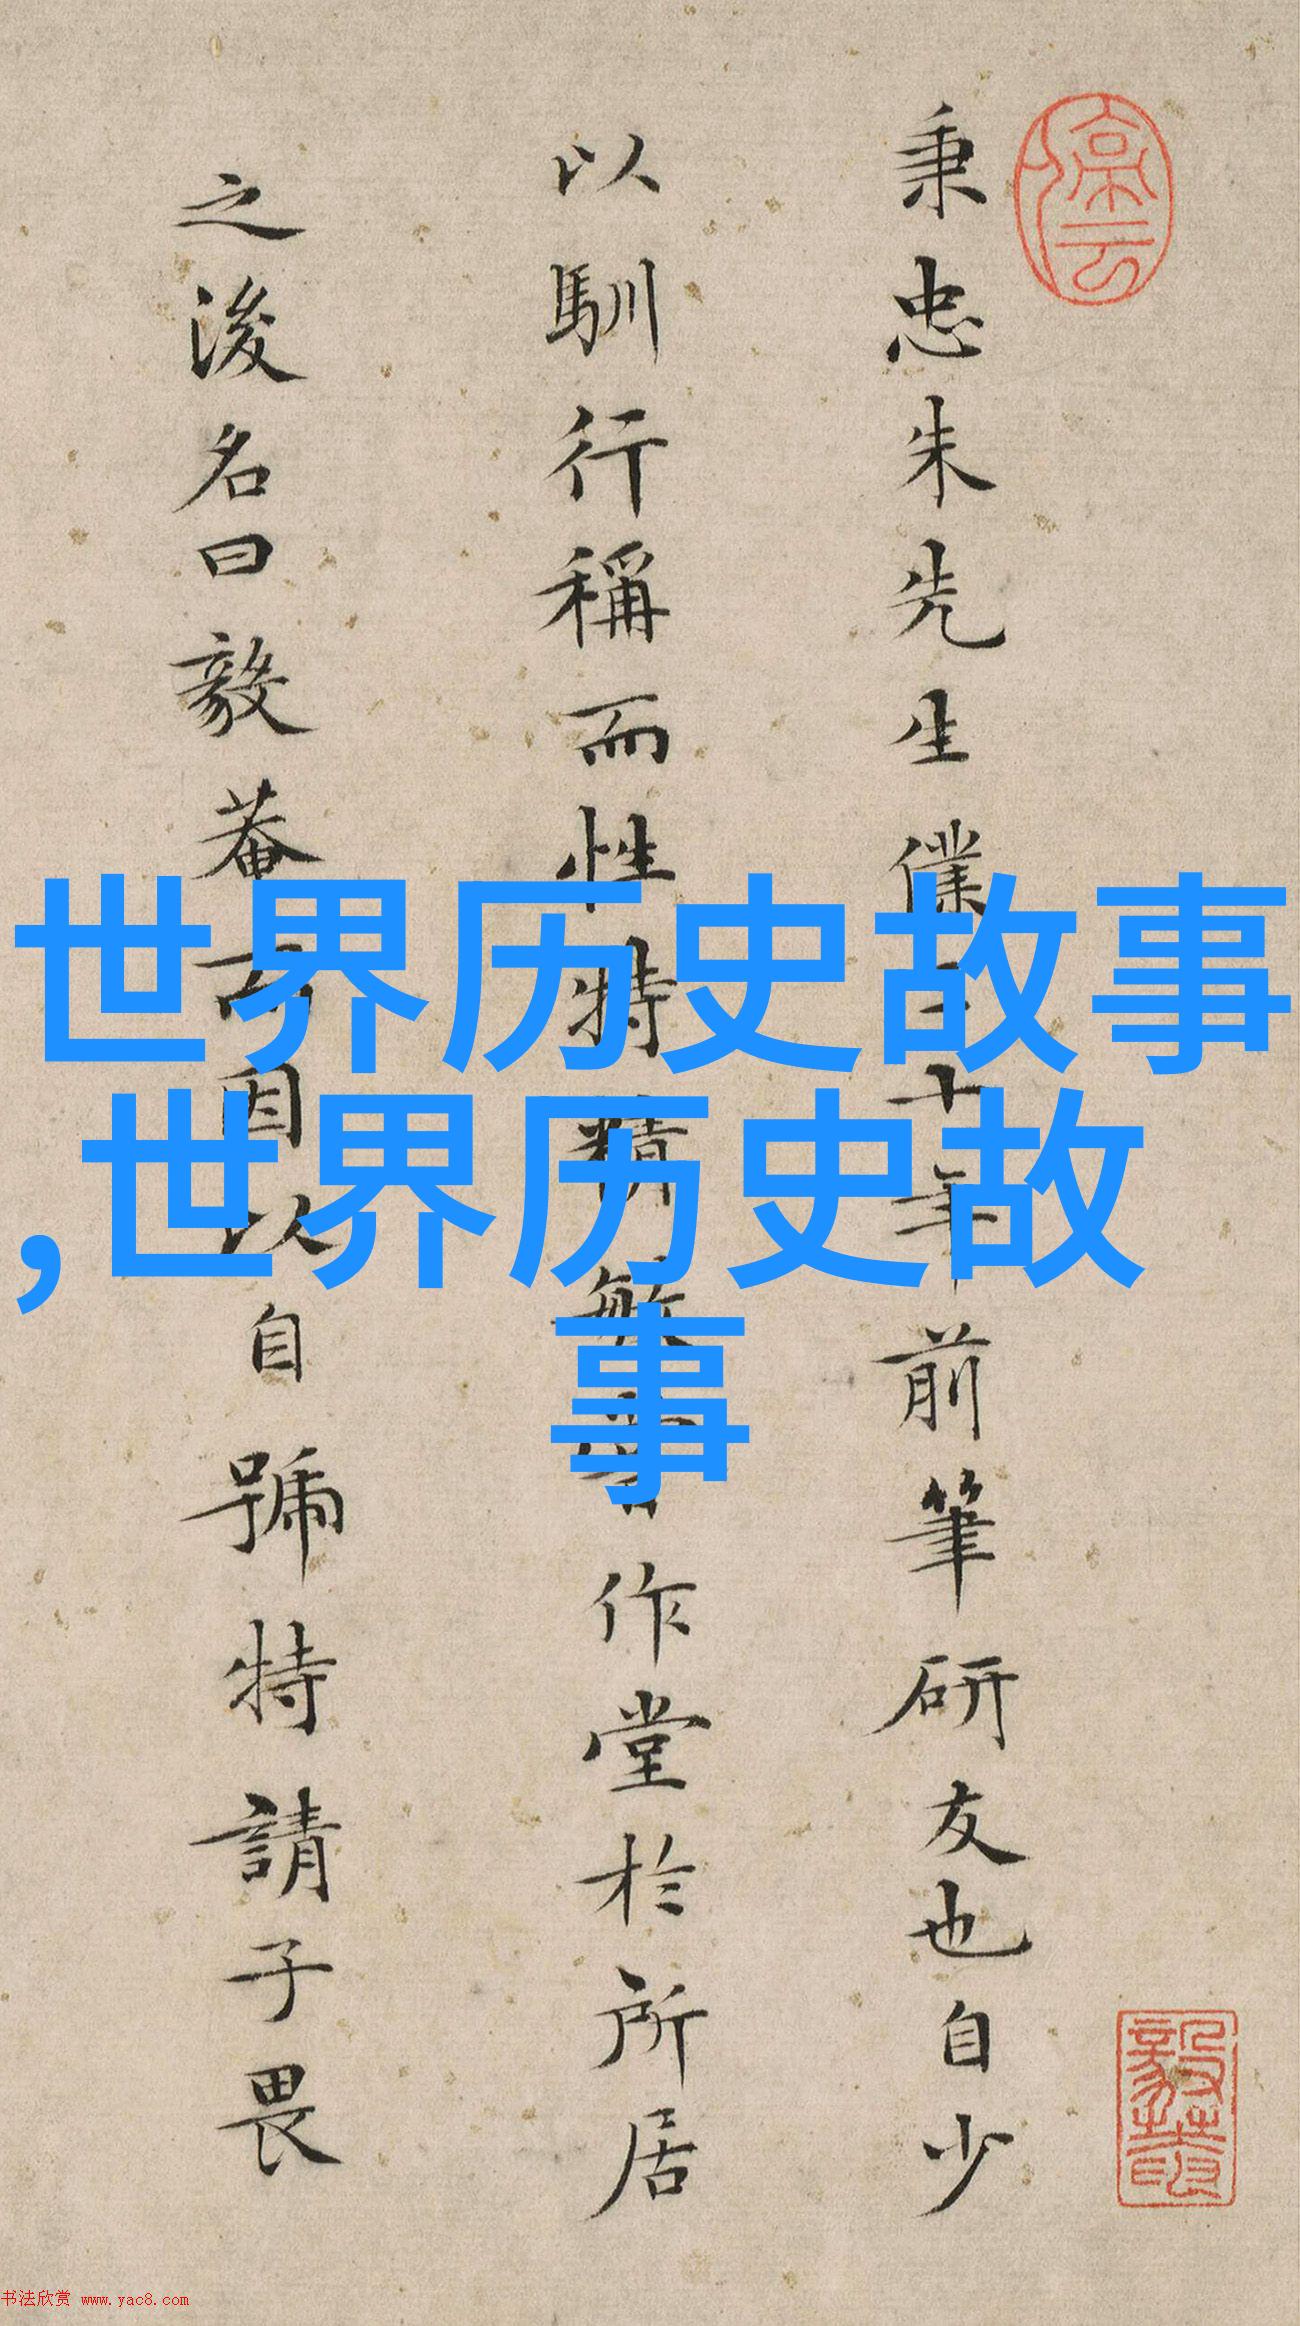 秉忠朱先生僕三十年前筆研友也自少
以馴行稱而性特精敏嘗作堂於所居
之後名曰毅菴而因以自號特請子畏
世界历史故事
,世界历史故
事
书法欣赏 www.yac8.com